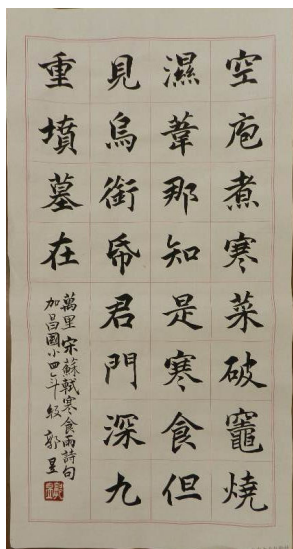 空庖煮寒菜破竈燒
濕葦那知是寒食但
見烏銜帋君門深九
重墳墓在
萬里 宋蘇軾寒食雨詩句
加昌國小四年級 郭昱